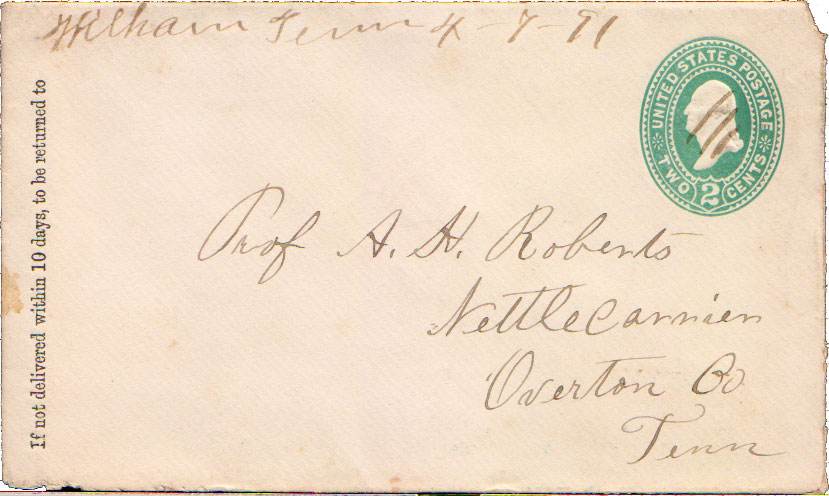 Wilham Tenn 4-7-91
UNITED STATES POSTAGE
TWO 2 CENTS
If not delivered within 10 days, to be returned to
Prof A. H. Roberts
Nettlecarrier
Overton Co
Tenn